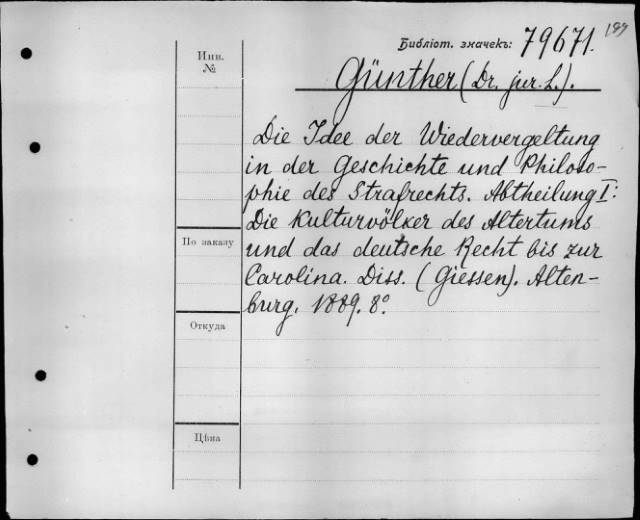 189
Библіот. значекъ: 79671.
Инв.
№
Günther (Dr. jur. L.).
Die Idee der Wiedervergeltung
in der Geschichte und Philoso-
phie des Strafrechts. Abtheilung I:
Die Kulturvölker des Altertums
und das deutsche Recht bis zur
Carolina. Diss. (Giessen). Alten-
burg. 1889. 8º
По заказу
Откуда
Цѣна